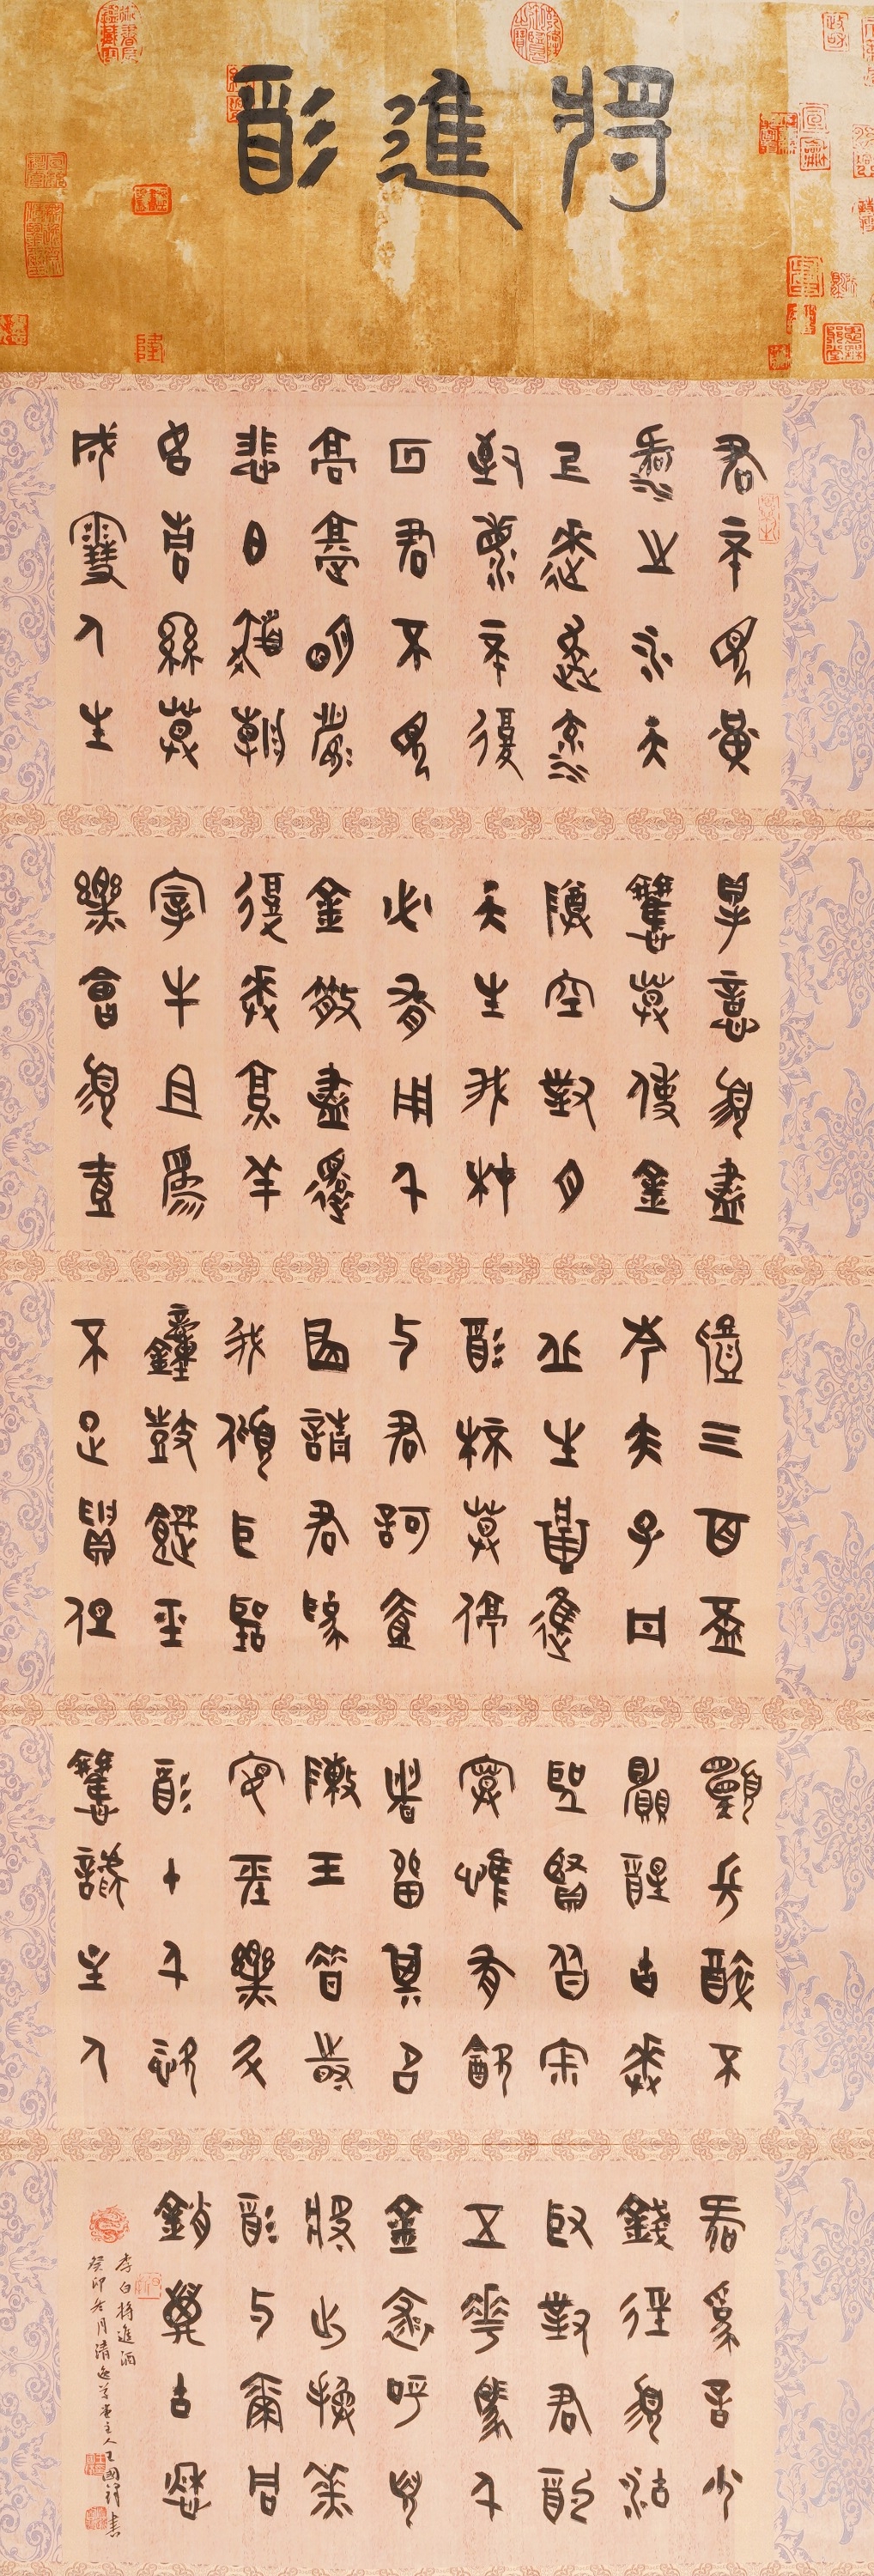 將進酒
君不見黃
河之水天
上來奔流
到海不復
回君不見
高堂明鏡
悲白髮朝
如青絲暮
成雪人生
得意須盡
歡莫使金
樽空對月
天生我材
必有用千
金散盡還
復來烹羊
宰牛且為
樂會須一
飲三百杯
岑夫子丹
丘生將進
酒杯莫停
與君歌一
曲請君為
我傾耳聽
鐘鼓饌玉
不足貴但
願長醉不
願醒古來
聖賢皆寂
寞惟有飲
者留其名
陳王昔時
宴平樂斗
酒十千恣
歡謔主人
何為言少
錢徑須沽
取對君酌
五花馬千
金裘呼兒
將出換美
酒與爾同
銷萬古愁
李白將進酒
癸卯冬月清逸草堂主人王國祥書